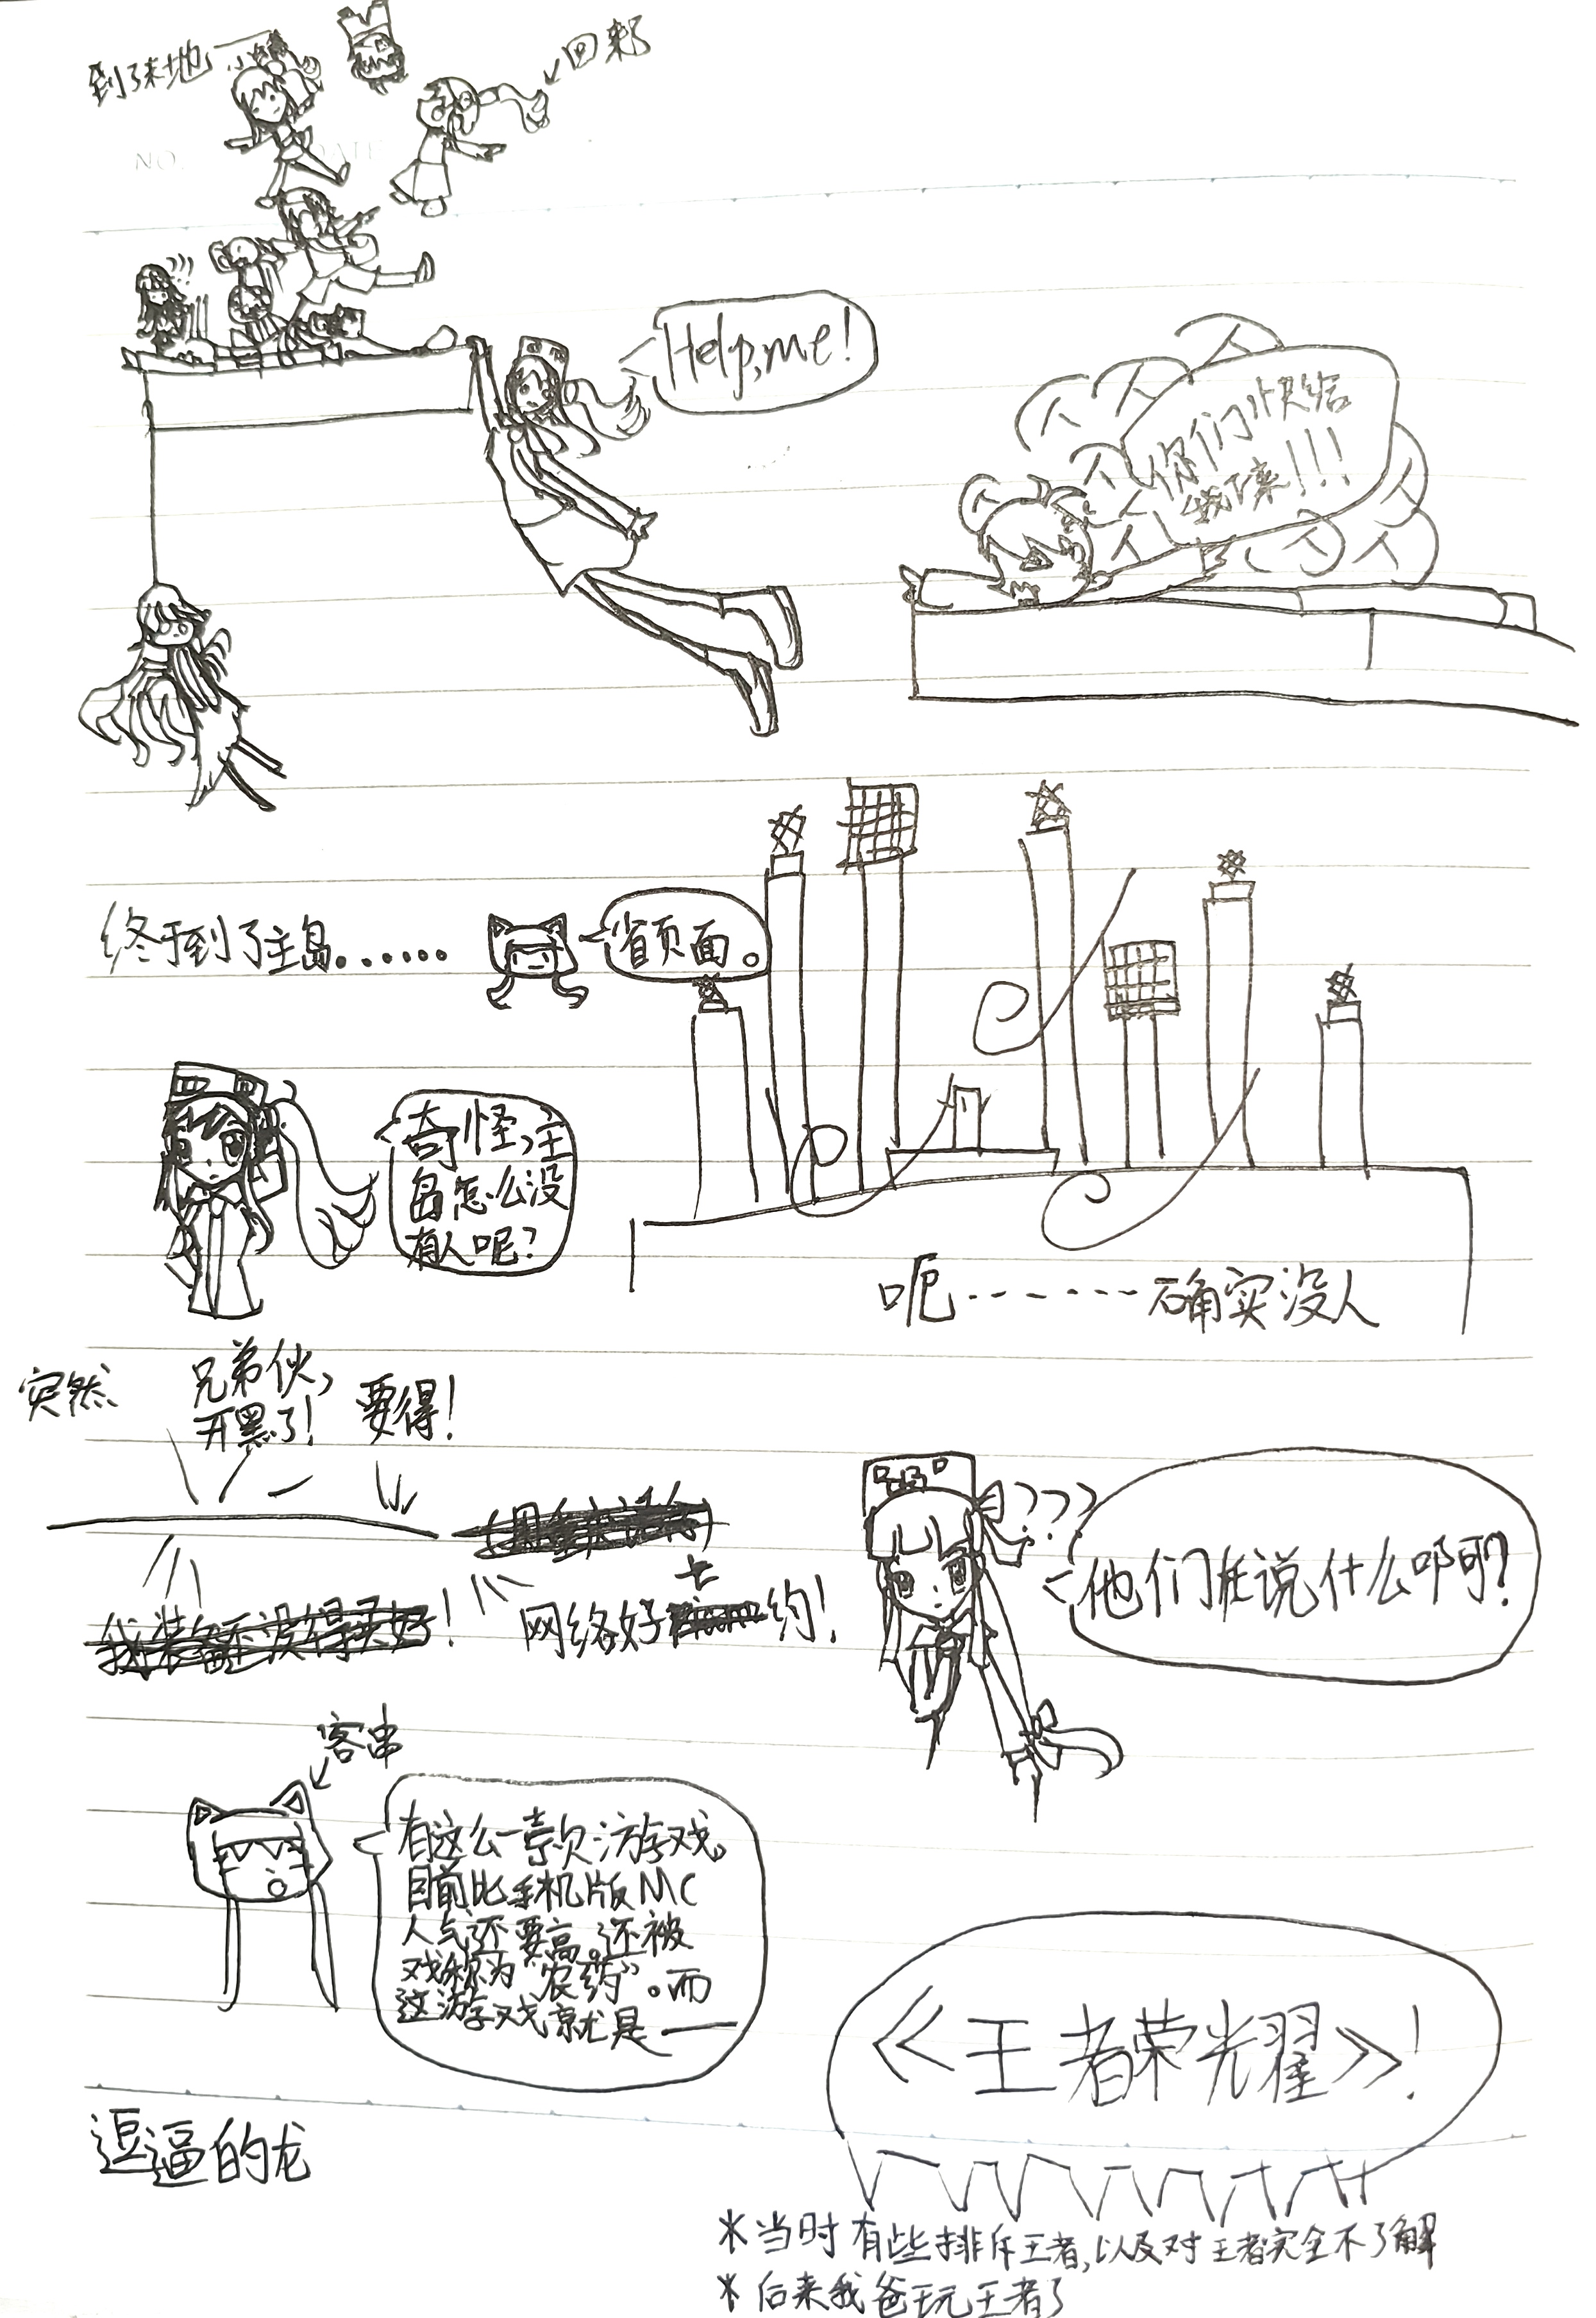 到了末地
回来了
NO.
DATE
Help, me!
你们快给
我下来!!!
终于到了主岛......
省页面。
奇怪,主
岛怎么没
有人呢?
呃-------确实没人
突然
兄弟伙,
开黑了!
要得!
我装备还没得买好!
网络好卡
约!
???
他们在说什么啊?
客串
有这么一款游戏,
目前比手机版MC
人气还要高。还被
戏称为"农药"。而
这游戏就是——
《王者荣光耀》!
逗逼的龙
*当时有些排斥王者,以及对王者完全不了解
*后来我爸玩王者了